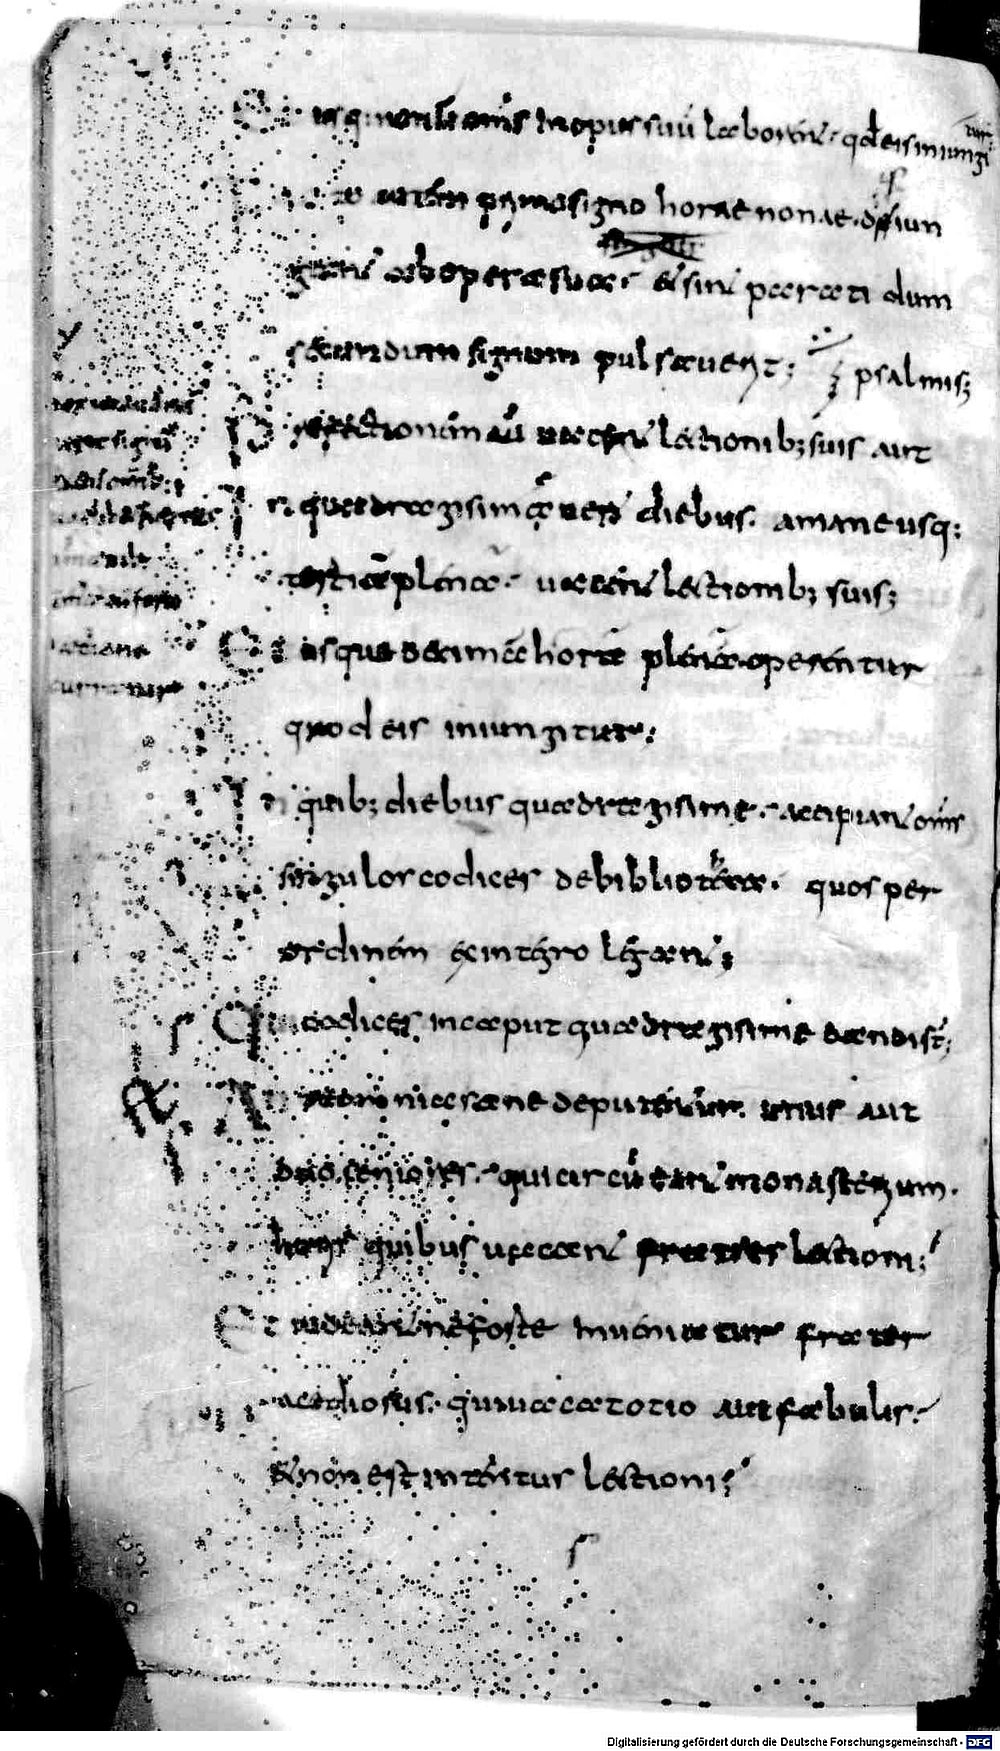 usq; nonā omnis in opus suū laborent. qđ eis iniungitur
autem primo signo horae nonae. disiun
gant ab opera sua. & sint parati dum
secundum signum pulsaverit; psalmis;
Post refectionem aū vacent lectionib; suis aut
In quadragesimæ vero diebus. amane usq;
tertia plena. vacent lectionib; suis;
Et usque decima hora plena operentur
quod eis iniungitur;
In quib; diebus quadragesime. accipiant omīs
singulos codices de bibliotheca. quos per
ordinem ex integro legant;
Qui codices in caput quadragesime dandi sť;
Ante omnia sane deputentur. unus aut
duo seniores. qui circūeant monasterium.
horis quibus vacant fratres lectioni;
Et videant ne forte inveniatur frater
acediosus. qui vacat otio aut fabulis.
& non est intentus lectioni;
Digitalisierung gefördert durch die Deutsche Forschungsgemeinschaft - DFG